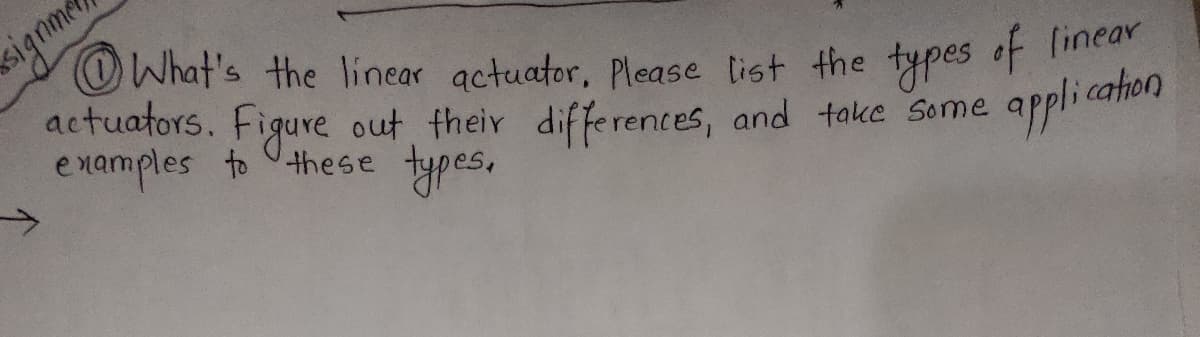 ① What's the linear actuator. Please list the types of linear
actuators. Figure out their differences, and take some application
examples to these types.
→